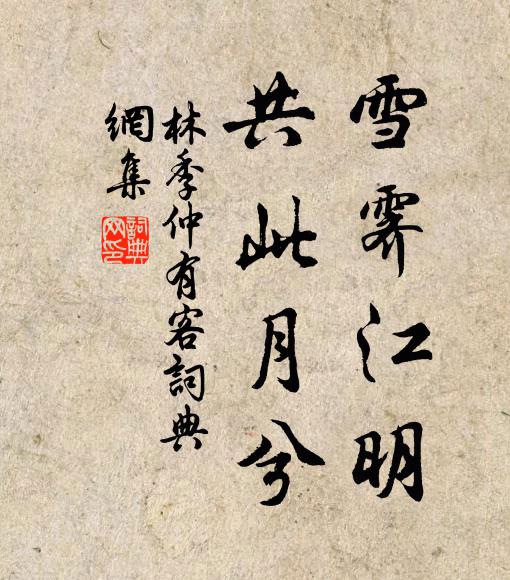 雪霁江明
共此月兮
林季仲有客詞典
網集
詞典
网印